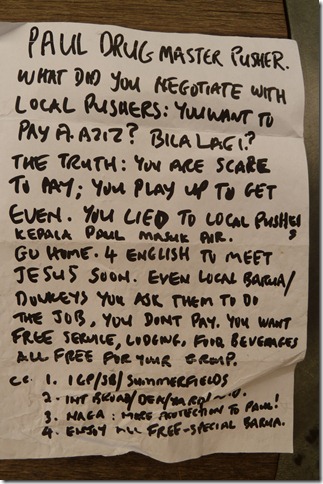 PAUL DRUG MASTER PUSHER.
WHAT DID YOU NEGOTIATE WITH
LOCAL PUSHERS: YOU WANT TO
PAY A. AZIZ? BILA LAGI?
THE TRUTH: YOU ARE SCARE
TO PAY; YOU PLAY UP TO GET
EVEN. YOU LIED TO LOCAL PUSHERS
KEPALA PAUL MASUK AIR.
GO HOME. 4 ENGLISH TO MEET
JESUS SOON. EVEN LOCAL BARUA/
DONKEYS YOU ASK THEM TO DO
THE JOB, YOU DONT PAY. YOU WANT
FREE SERVICE, LODING, FOOD BEVERAGES
ALL FREE FOR YOUR GROUP.
CC. 1. IGP/SB/SUMMERFIELDS
2. INT
3. NAGA: MORE PROTECTION TO PAUL!
4. ENJOY ALL FREE-SPECIAL BARUA.